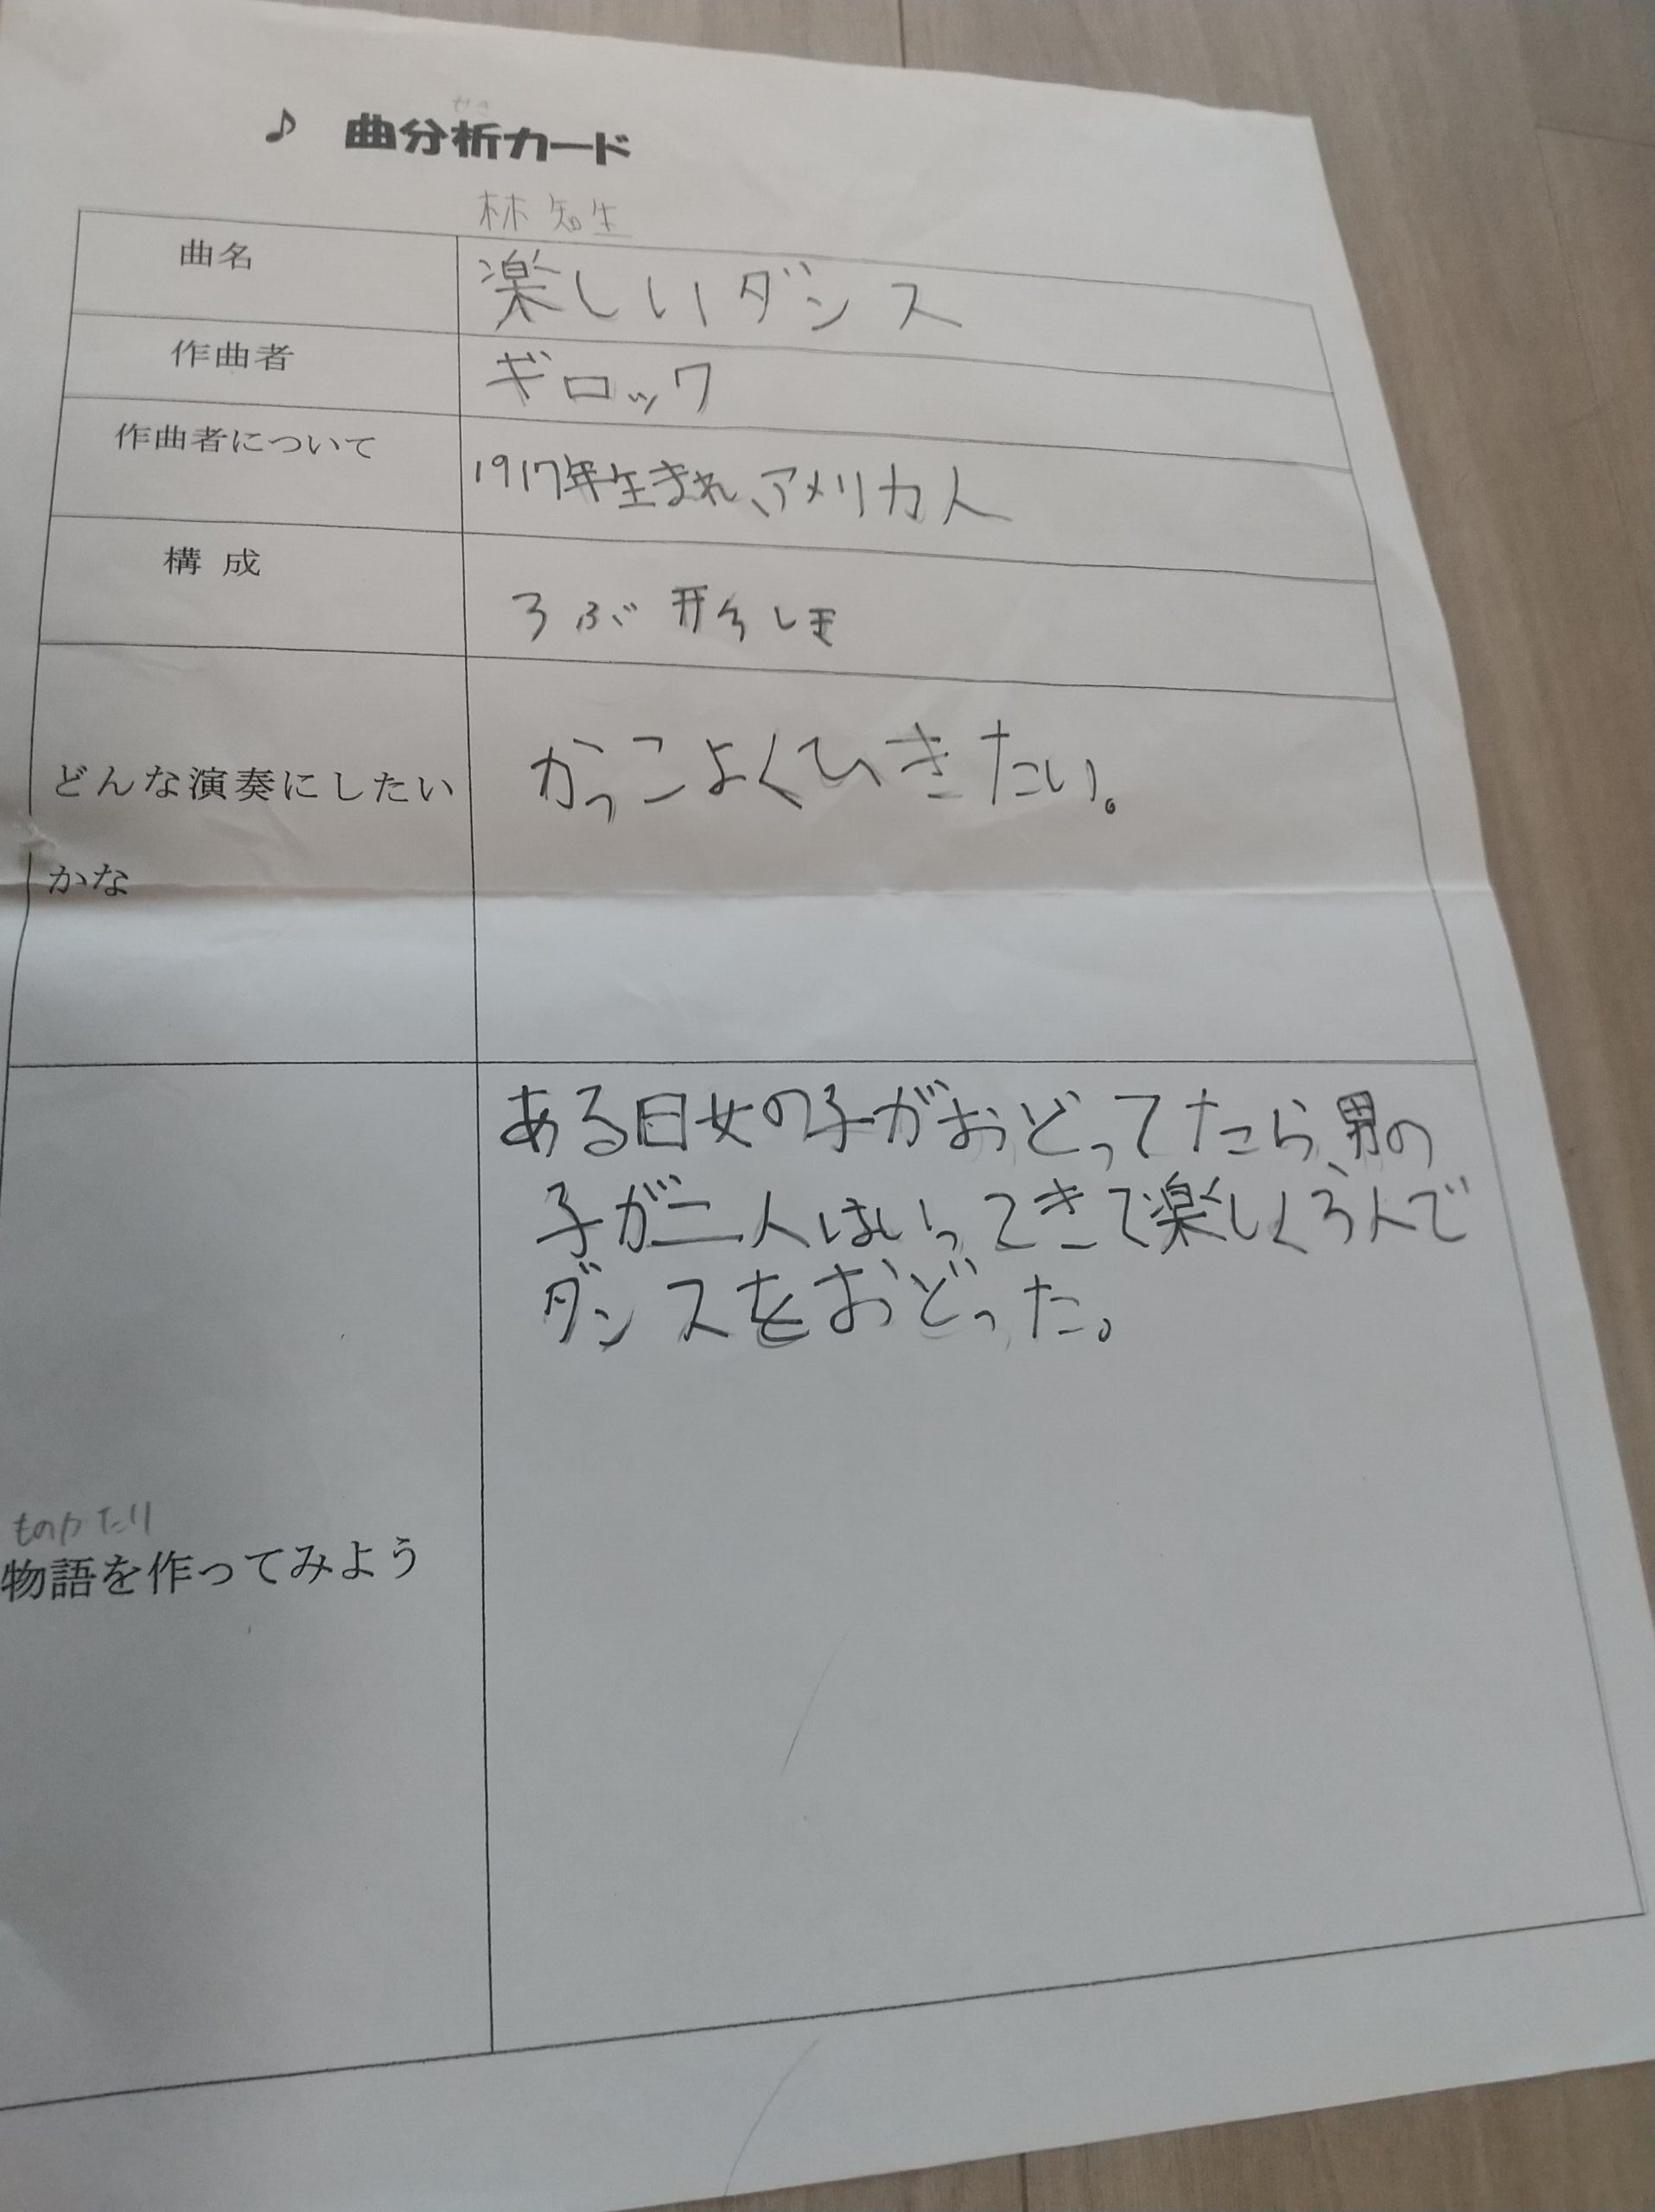 ♪ 曲分析カード
林 知生
曲名 楽しいダンス
作曲者 ギロック
作曲者について 1917年生まれ、アメリカ人
構成 3ぶ形しき
どんな演奏にしたい かっこよくひきたい。
かな
ある日女の子がおどってたら、男の
子が二人はいってきて楽しく3人で
ダンスをおどった。
ものがたり
物語を作ってみよう